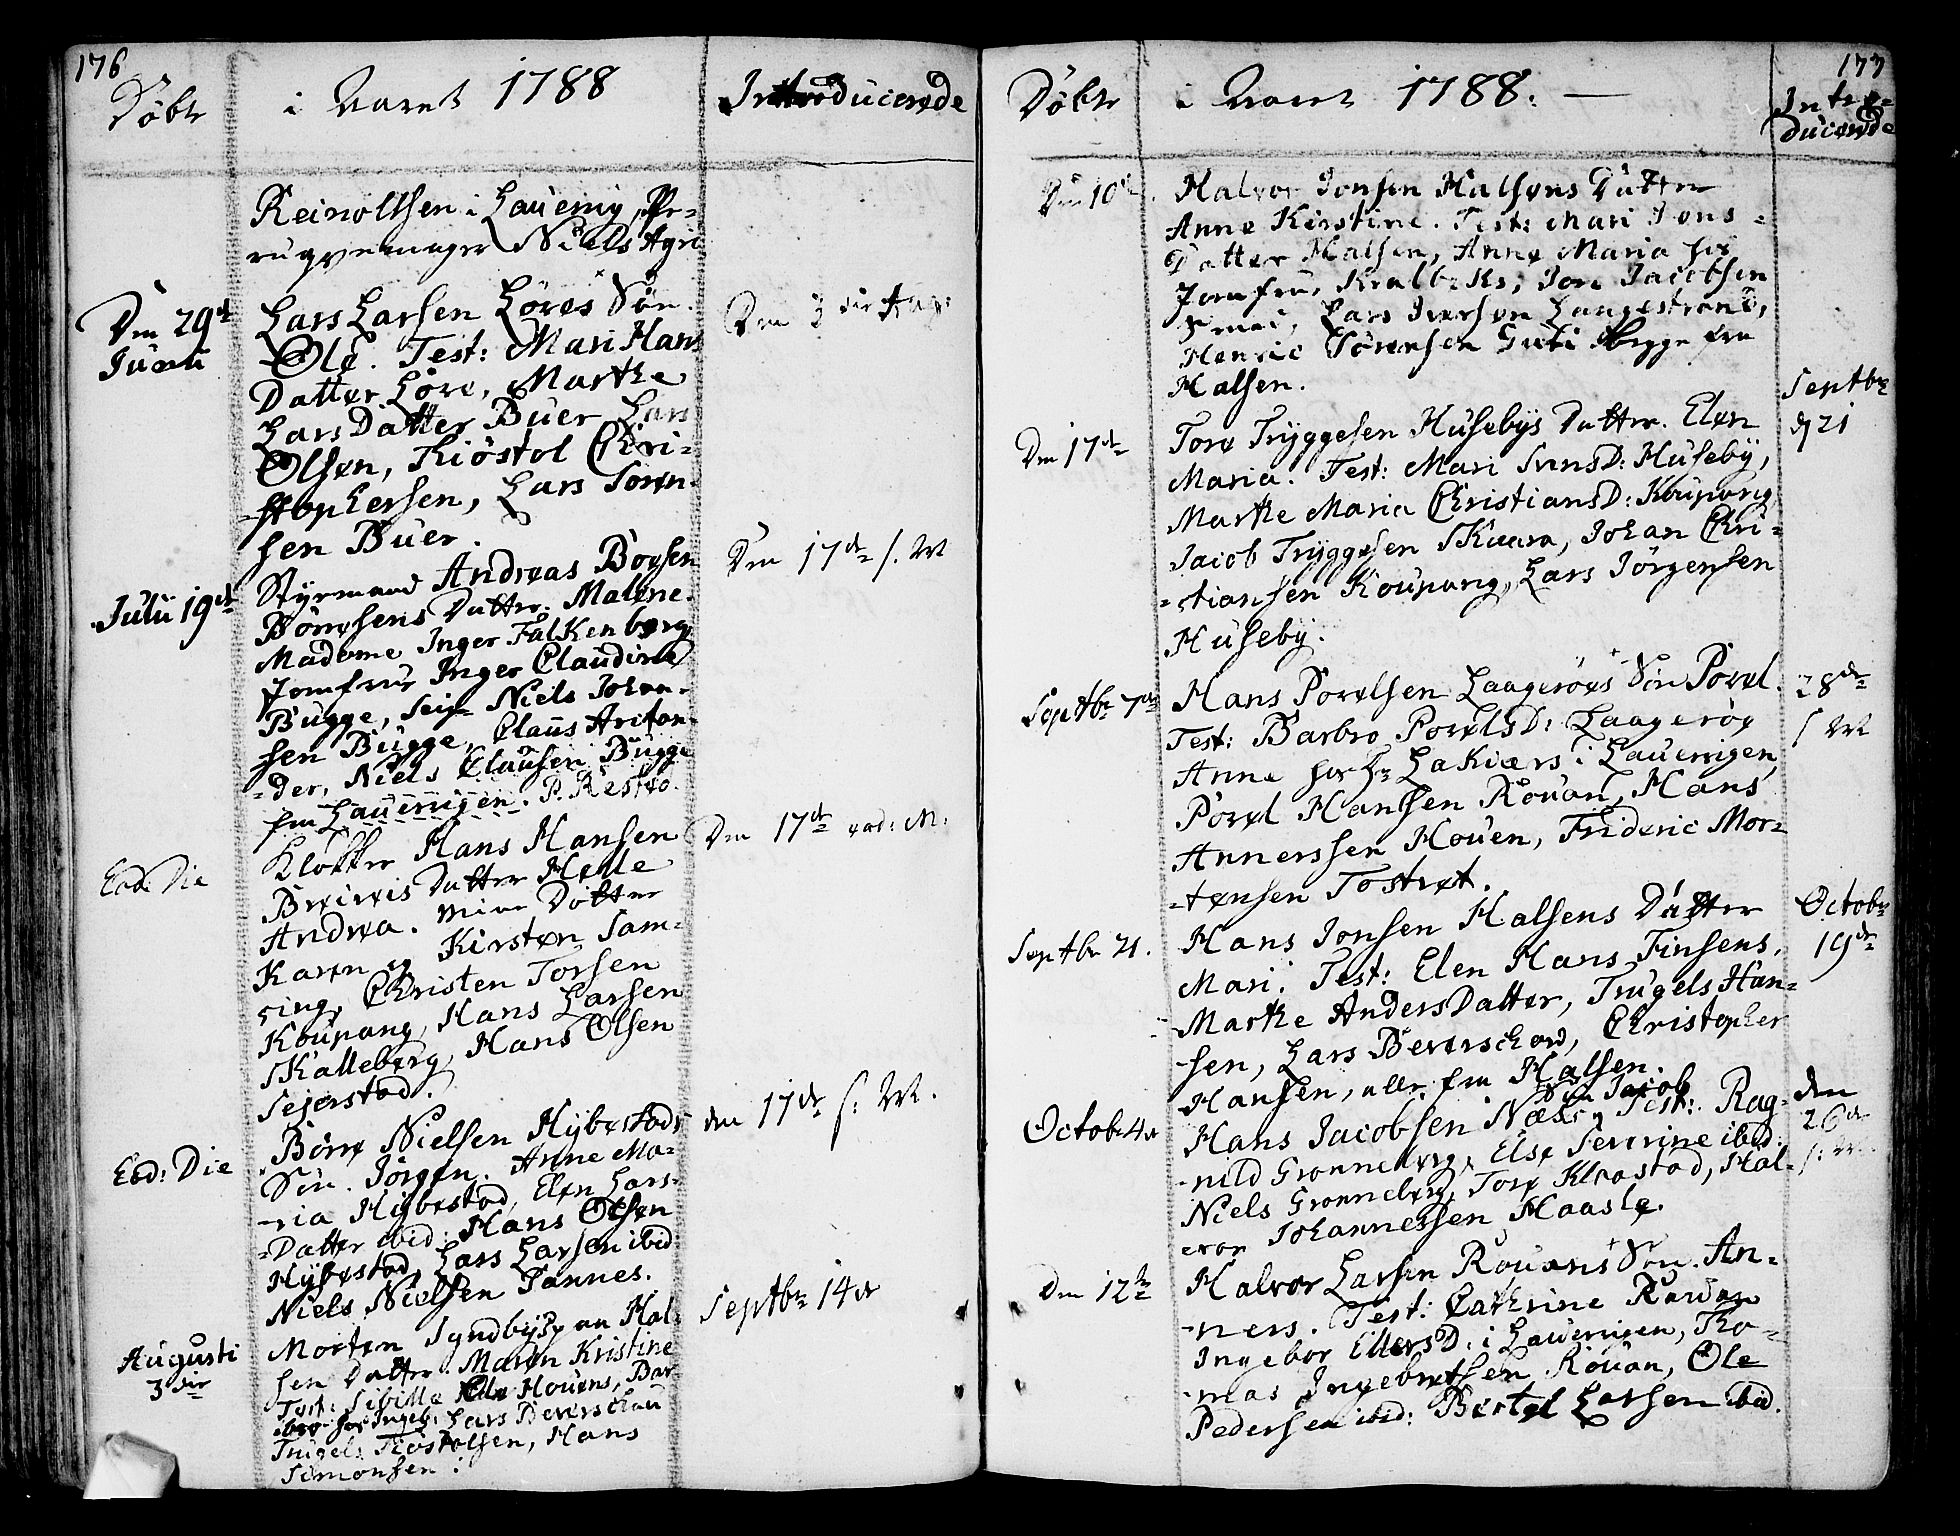 176
Døbte i Aaret 1788 Introducerede
Reinoltsen i Lauervig, Pe-
rugvemager Niels Agri
Den 29de Junii
Lars Larsen Löves Sön
Ole. Test: Mari Hans
Datter Löve, Marthe
Lars Datter Buer Lars
Olsen, Kiöstol Chri-
stophersen, Lars Sören-
sen Buer.
Den 3die Aug:
Julii 19de
Styrmand Andreas Boesen
Börresens Datter Malene.
Madame Inger Falkenberg
Jomfrue Inger Claudine
Bugge, Seigr Niels Johan-
sen Bugge, Claus Anton-
der, Niels Clausen Bugge
fra Lauervigen. P. Restro.
Den 17de s. M
Eod: Die
Klokker Hans Hansen
Breivis Datter Helle
Andrea. mine Døttre
Karen og Kirsten Sam-
sing, Christen Torsen
Koupang, Hans Larsen
Skalleberg, Hans Olsen
Sejerstad.
Den 17de eod: M:
Eod: Die
Börre Nielsen Hybestads
Sön Jörgen. Anne Ma-
ria Hybestad, Elen Lars-
Datter ibid: Hans Olsen
Hybestad, Lars Larsen ibid:
Niels Nielsen Sannes.
den 17de s: M.
Augusti 3die
Morten Syndbye paa Hal-
sen Datter Maren Kristine
Test: Sibilla Houens, Bar-
bro Lars Beverschau
Trugels Kiöstolsen, Hans
Simonsen:
Septbr 14de
177
Døbte i Aaret 1788. Intro-
ducerede
Den 10de
Halvor Jonsen Halsens Datter
Anne Kirstine. Test: Mari Jons-
Datter Halsen, Anne Maria hos
Jomfrue Kralbeks, Jon Jacobsen
Lars Iversen Langestrand,
Henric Sörensen begge fra
Halsen.
Den 17de
Tore Tryggesen Husebys Datter Elen
Maria. Test: Mari D: Huseby,
Marthe Maria ChristiansD: Koupang
Jacob Tryggesen Skaara, Johan Chri-
stiansen Koupang, Lars Jörgensen
Huseby.
Septbr
d 21
Septbr 7de
Hans Povelsen Laageröes Sön Povel.
Test: Barbro PovelsD: Laageröe
Anne hos Hr Lakiers i Lauervigen,
Povel Hansen Rouan, Hans
Annerssen Houen, Frideric Mor-
tensen Tostret.
28de
s M
Septbr 21.
Hans Jonsen Halsens Datter
Mari. Test: Elen Hans Finsens,
Marthe Anders Datter, Trugels Han-
sen, Lars Beverschow, Christopher
Hansen, alle fra Halsen.
Octobr
19de
Octob. 4de
Hans Jacobsen Næss Sön Jacob Test: Rag-
nild Gronneberg, Else Severine ibid:
Niels Gronneberg, Tore Klaastad, Hal-
vor Johannessen Haasle.
den
26de
s: M.
Den 12te
Halvor Larsen Rouans Sön An-
ners. Test: Cathrine Rouan
Ingebor EllersD: i Lauervigen, Tho-
mas Ingebretsen Rouan, Ole
Pedersen ibid: Bertel Larsen ibid.